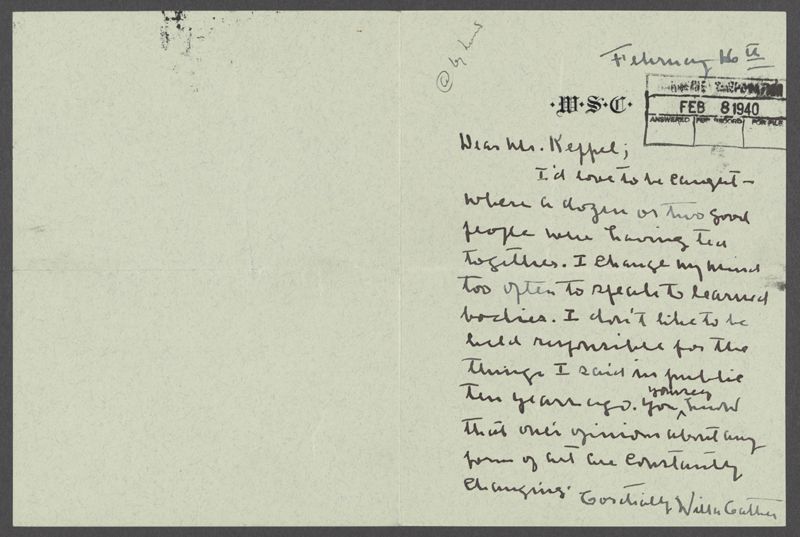 @ by hand
February 16th
FEB 8 1940
ANSWERED FOR RECORD FOR FILE
·W·S·C·
Dear Mr. Keppel;
I'd love to be caught—
where a dozen or two good
people were having tea
together. I change my mind
too often to speak to learned
bodies. I don't like to be
held responsible for the
things I said in public
ten years ago. You yourself know
that one's opinions about any
form of art are constantly
changing.
Cordially Willa Cather